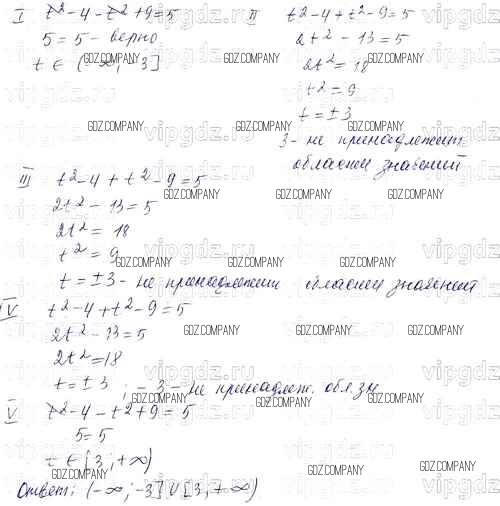 I t²-4-t²+9=5
5=5 - верно
t ∈ (-∞; -3]
II t²-4+t²-9=5
2t²-13=5
2t²=18
t²=9
t=±3
3 - не принадлежит
области значений
III t²-4+t²-9=5
2t²-13=5
2t²=18
t²=9
t=±3 - не принадлежит области значений
IV t²-4+t²-9=5
2t²-13=5
2t²=18
t=±3 ; -3 - не принадлеж. обл зн
V t²-4-t²+9=5
5=5
t ∈ [3, +∞)
Ответ: (-∞; -3] U [3, +∞)